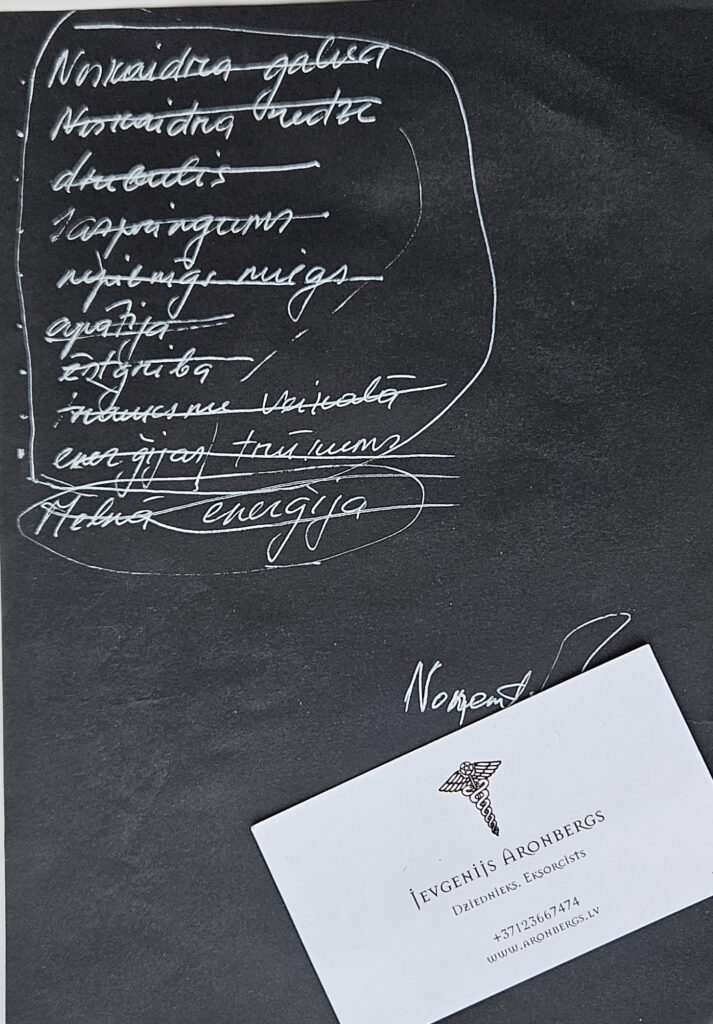 Neskaidra galva
Neskaidra redze
drebulis
Saspringums
nepilnīgs miegs
apātija
īstgriba
trauksme veikalā
enerģijas trūkums
Melnā enerģija
Noņemt
JEVGENIJS ARONBERGS
DZIEDNIEKS. EKSORCISTS
+37123667474
WWW.ARONBERGS.LV